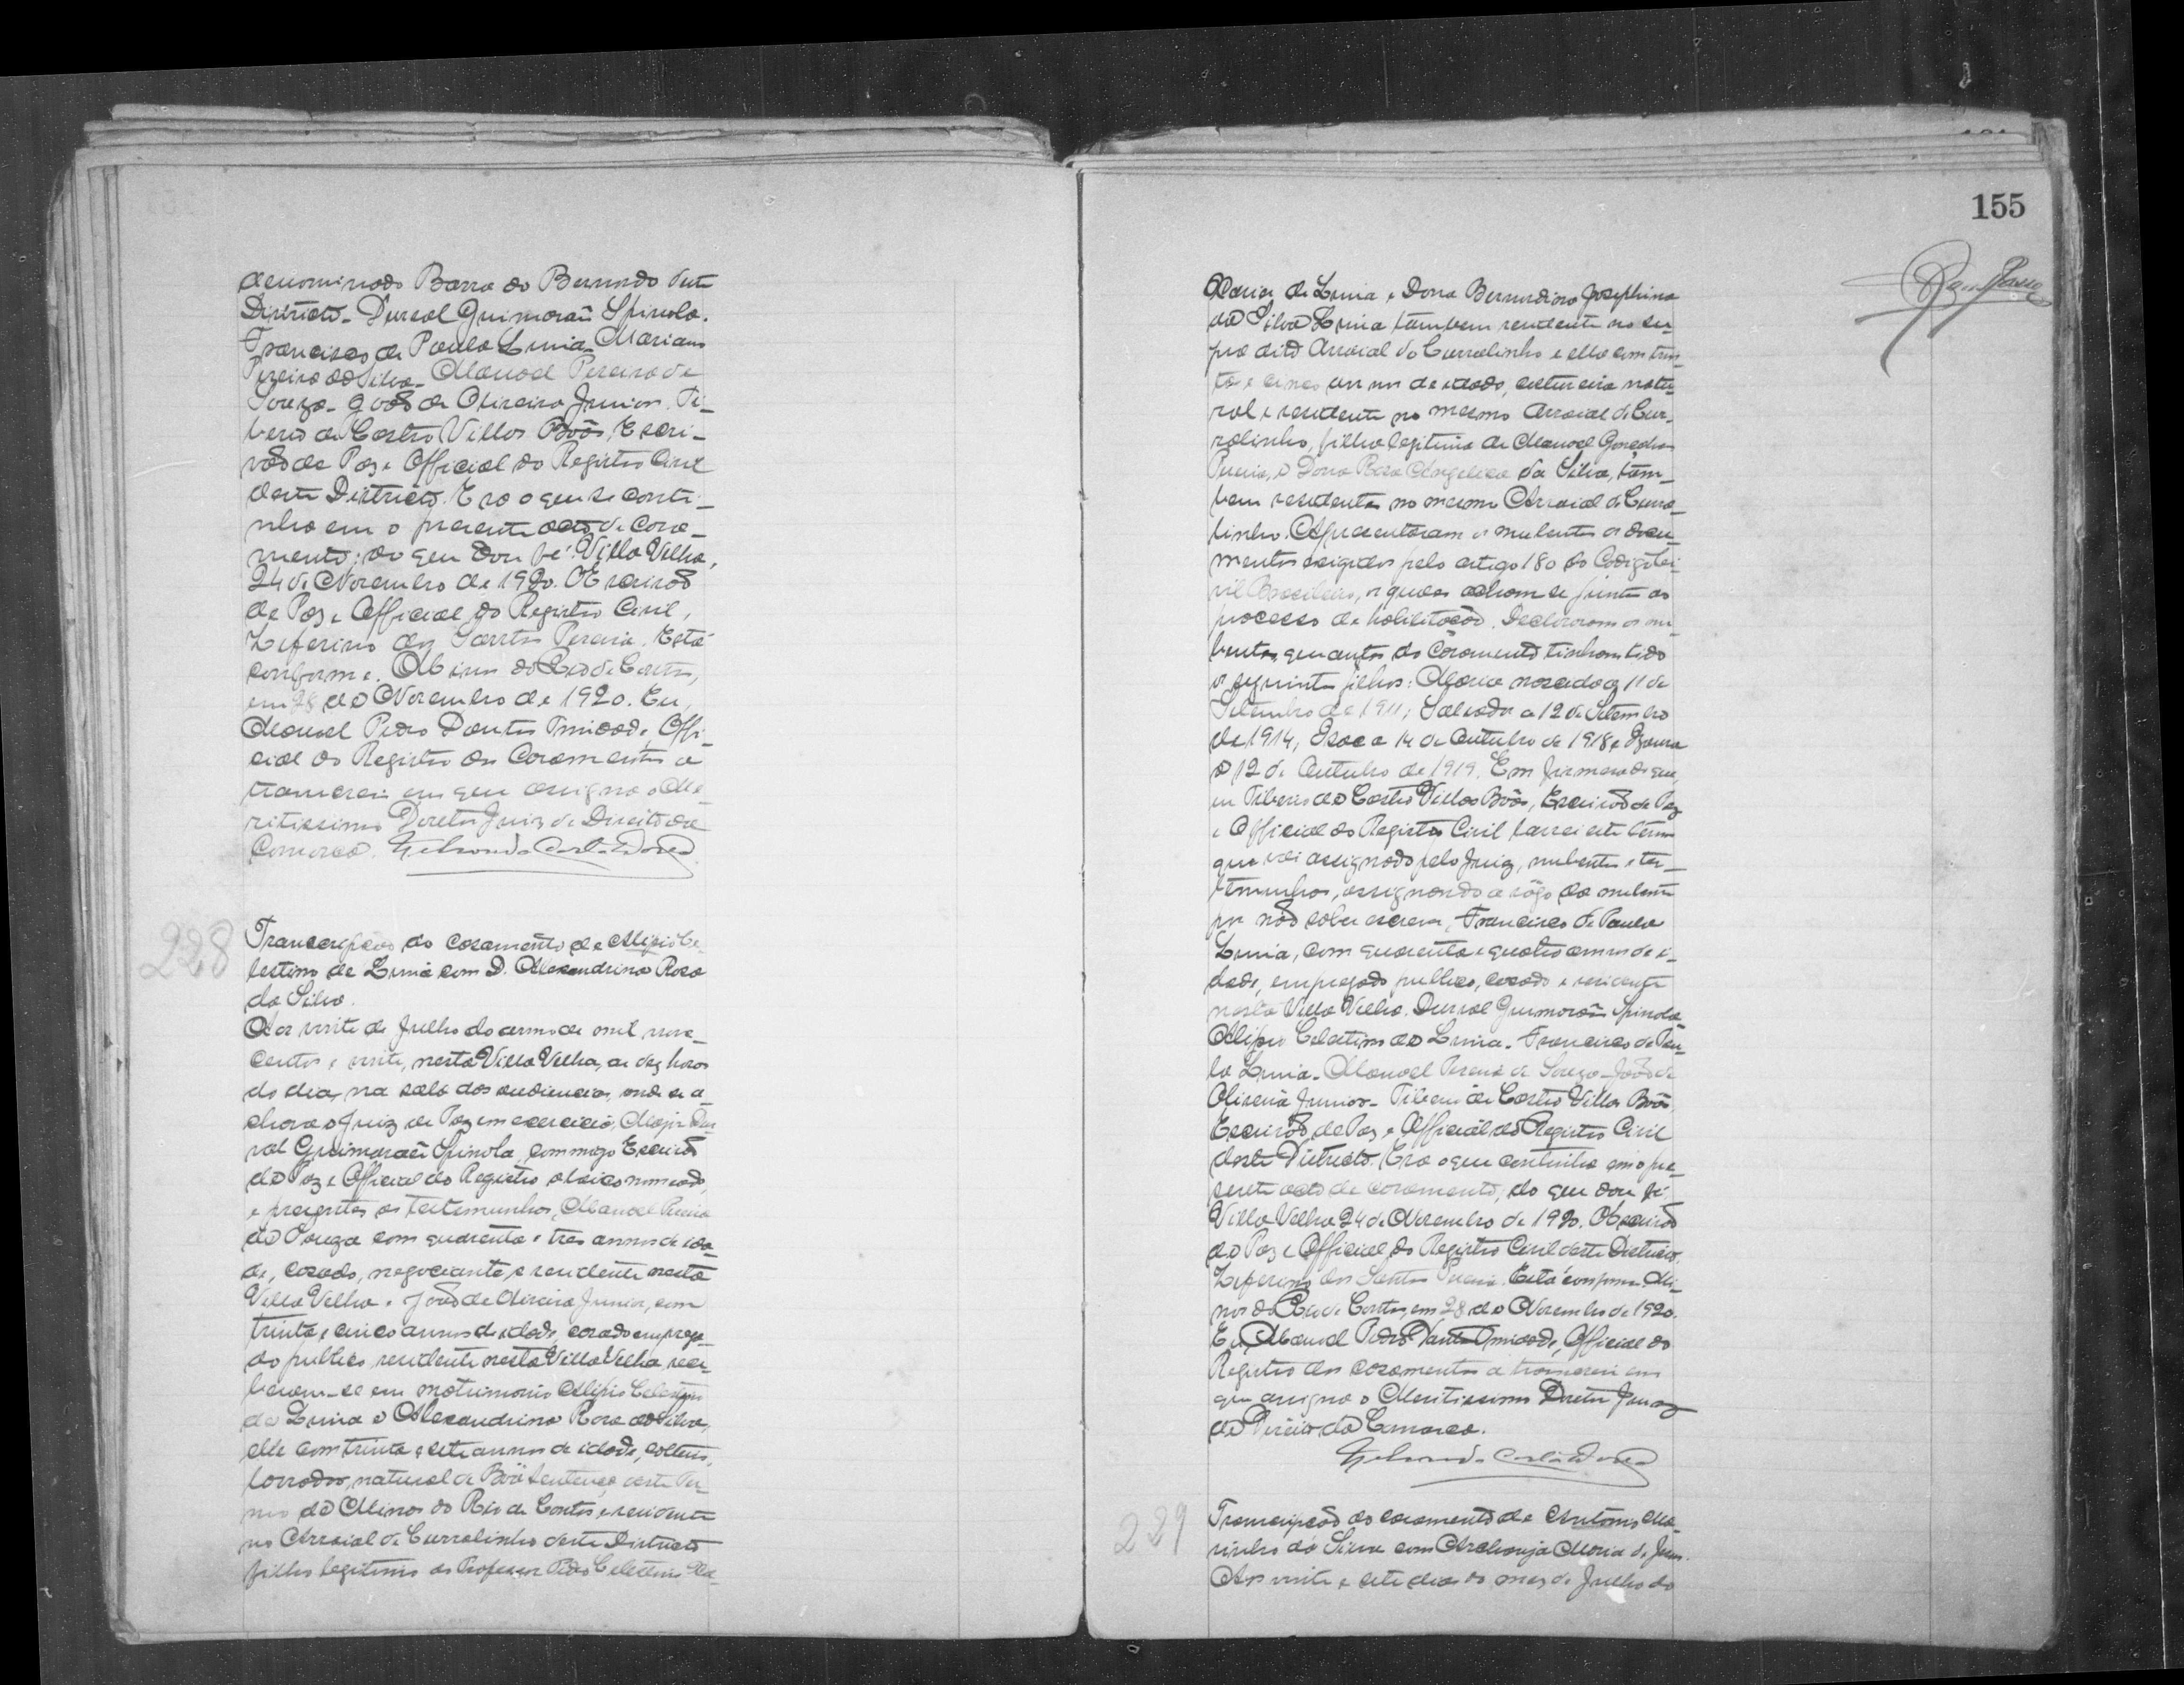 denominado Barra do Bernardo deste
Districto. Durval Guimarães Spinola.
Francisco de Paula Luna. Mariano
Pereira da Silva. Manoel Pereira de
Souza. João de Oliveira Junior. Ti-
berio de Castro Villas Boas, Escri-
vão de Paz e Official do Registro Civil
deste Districto. Era o que se conti-
nha em o presente acto de casa-
mento; do que dou fé. Villa Velha,
24 de Novembro de 1920. O Escrivão
de Paz e Official do Registro Civil,
Zeferino dos Santos Pereira. Está
conforme. Minas do Rio de Contas,
em 28 de Novembro de 1920. Eu,
Manoel Pedro Dantas Trindade, Offi-
cial do Registro dos Casamentos a
transcrevi em que assigna o Me-
ritissimo Doutor Juiz de Direito da
Comarca.
228
Transcripção do casamento de Alipio Ce-
lestino de Luna com D. Alexandrina Rosa
da Silva.
Aos vinte de Julho do anno de mil nove-
centos e vinte, nesta Villa Velha, as dez horas
do dia, na sala das audiencias, onde se a-
chava o Juiz de Paz em exercicio, Major Dur-
val Guimarães Spinola, commigo Escrivão
de Paz e Official do Registro abaixo nomeado,
e presentes as testemunhas, Manoel Pereira
de Souza com quarenta e tres annos de ida-
de, casado, negociante e residente nesta
Villa Velha e João de Oliveira Junior, com
trinta e cinco annos de idade, casado emprega-
do publico, residente nesta Villa Velha rece-
beram-se em matrimonio Alipio Celestino
de Luna e Alexandrina Rosa da Silva,
elle com trinta e sete annos de idade, solteiro,
lavrador, natural de Bôa Sentença deste Ter-
mo de Minas do Rio de Contas e residente
no Arraial de Curralinho deste Districto
filho legitimo do Professor Pedro Celestino
155
Maria de Luna e Dona Bernardina Josephina
da Silva Luna tambem residente no su-
pra dito Arraial do Curralinho e ella com trin-
ta e cinco annos de idade, solteira natu-
ral e residente no mesmo Arraial de Cur-
ralinho, filha legitima de Manoel
Pereira, e Dona Rosa Angelica da Silva, tam-
bem residentes no mesmo Arraial de Curra-
linho. Apresentaram os nubentes os docu-
mentos exigidos pelo artigo 180 do Codigo Ci-
vil Brasileiro, os quaes acham-se juntos ao
processo de habilitação. Declararam os nu-
bentes, que antes do casamento tinham tido
os seguintes filhos: Maria nascida a 11 de
Setembro de 1911; Salvador a 12 de Setembro
de 1914, Isac a 14 de Outubro de 1918 e Izaura
a 12 de Outubro de 1919. Em firmeza do que,
eu Tiberio de Castro Villas Boas, Escrivão de Paz
e Official do Registro Civil lavrei este termo
que vai assignado pelo Juiz, nubentes e tes-
temunhas, assignando a rôgo da nubente
por não saber escrever, Francisco de Paula
Luna, com quarenta e quatro annos de i-
dade, empregado publico, casado e residente
nesta Villa Velha. Durval Guimarães Spinola.
Alipio Celestino de Luna. Francisco de Pau-
la Luna. Manoel Pereira de Souza. João de
Oliveira Junior. Tiberio de Castro Villas Boas,
Escrivão de Paz e Official do Registro Civil
deste Districto. Era o que continha em o pre-
sente acto de casamento, do que dou fé.
Villa Velha 24 de Novembro de 1920. O Escrivão
de Paz e Official do Registro Civil deste Districto,
Zeferino dos Santos Pereira. Está conforme. Mi-
nas do Rio de Contas em 28 de Novembro de 1920.
Eu, Manoel Pedro Dantas Trindade, Official do
Registro dos casamentos a transcrevi em
que assigna o Meritissimo Doutor Juiz
de Direito da Comarca.
229
Transcripção do casamento de Antonio Ma-
rinho da Silva com Archanja Maria de Jesus.
Aos vinte e sete dias do mez de Julho do